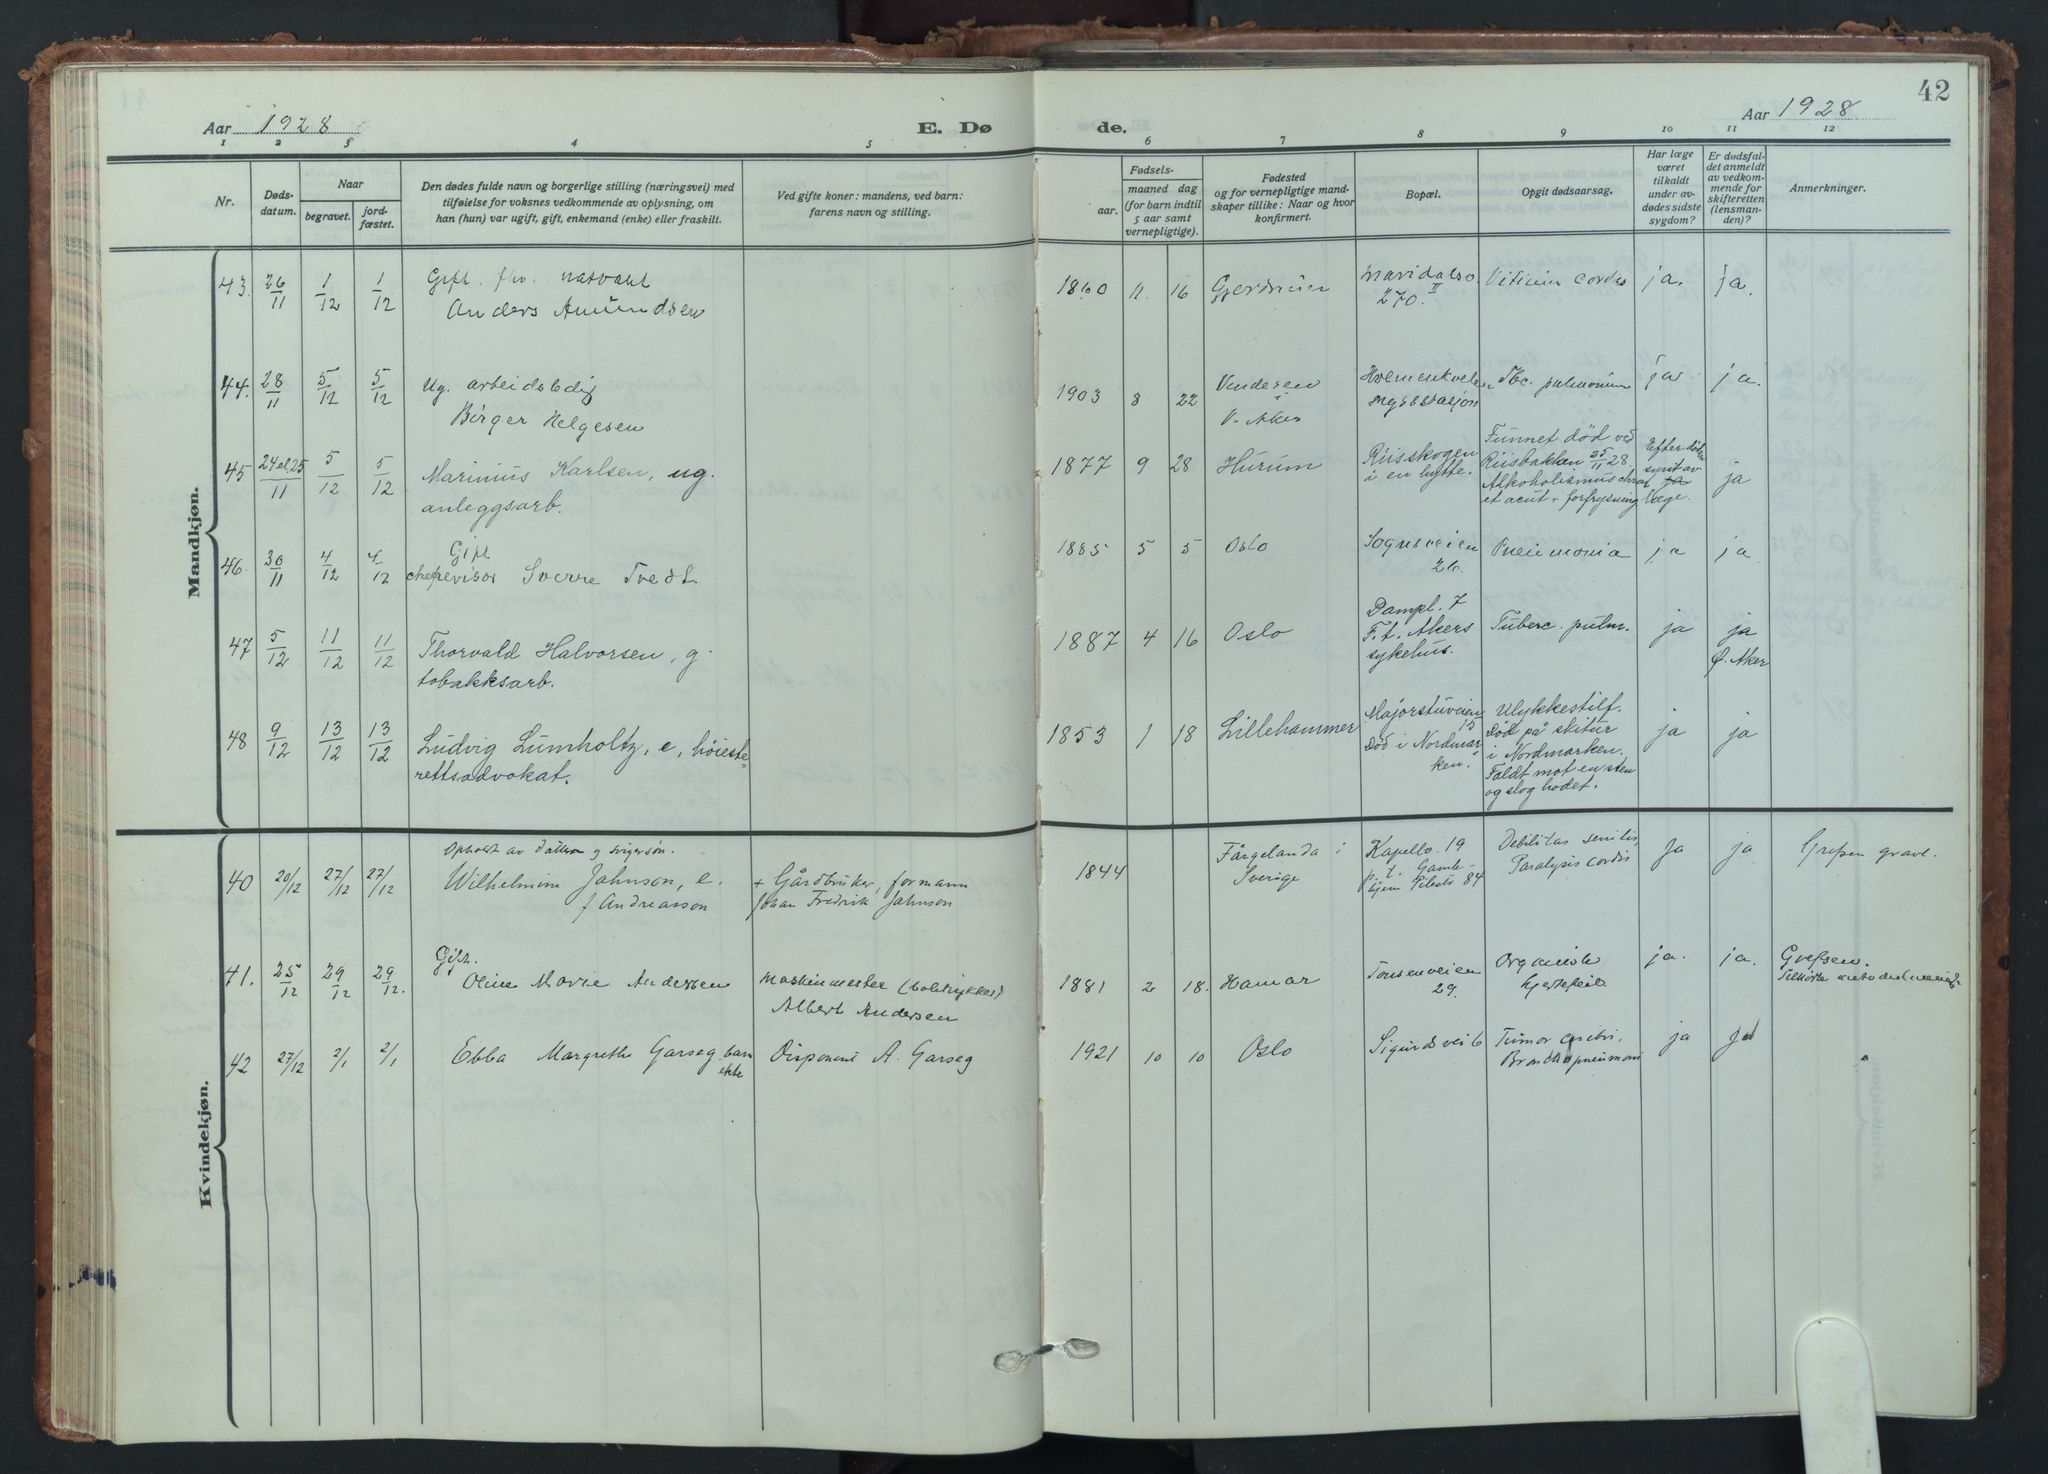 42
Aar 1928
E. Dø
de.
Aar 1928
1 2 3 4 5 6 7 8 9 10 11 12
Nr.
Døds-
datum.
Naar
begravet.
jord-
fæstet.
Den dødes fulde navn og borgerlige stilling (næringsvei) med
tilføielse for voksnes vedkommende av oplysning, om
han (hun) var ugift, gift, enkemand (enke) eller fraskilt.
Ved gifte koner: mandens, ved barn:
farens navn og stilling.
Fødsels-
aar.
maaned dag
(for barn indtil
5 aar samt
vernepligtige).
Fødested
og for vernepligtige mand-
skaper tillike: Naar og hvor
konfirmert.
Bopæl.
Opgit dødsaarsag.
Har læge
været
tilkaldt
under av-
dødes sidste
sygdom?
Er dødsfal-
det anmeldt
av vedkom-
mende for
skifteretten
(lensman-
den)?
Anmerkninger.
Mandkjøn.
43. 26/11 1/12 1/12 Gift. fhv.
Anders Amundsen
1860 11. 16 Gjerdrum
Maridalsv.
270. II
Vitium cordis ja. ja.
44. 28/11 5/12 5/12 Ug. arbeidsledig
Birger Helgesen
1903 8 22 Vinderen
V. Aker
Tbc. pulmonum ja ja.
45 24 el. 25/11 5/12 5/12 Marinius Karlsen, ug.
anleggsarb.
1877 9 28 Hurum
Riisskogen
i en hytte.
Funnet død ved
Riisbakken 25/11 28.
Alkoholismus chron
et acut + forfrysning
Efter døden
synt av
ja
læge.
ja
46. 30/11 4/12 4/12 Gift
chefrevisor Sverre Tvedt
1885 5 5 Oslo
Sognsveien
26.
Pneumonia ja ja.
47 5/12 11/12 11/12 Thorvald Halvorsen, g.
tobakksarb.
1887 4 16 Oslo
Dampl. 7
F. t. Akers
sykehus.
Tuberc. pulm. ja ja
Ø. Aker
48 9/12 13/12 13/12 Ludvig Lumholtz, e, høieste-
rettsadvokat.
1853 1 18 Lillehammer
Majorstuveien
15
Død i Nordmar-
ken.
Ulykkestilf.
Død på skitur
i Nordmarken.
Faldt mot en sten
og slog hodet.
ja ja
Kvindekjøn.
40 20/12 27/12 27/12 Ophold av datter og svigersøn.
Wilhelmine Johnson, e.
f Andreasson
+ Gårdbruker, formann
Johan Fredrik Johnson
1844
Färgelanda i
Sverige
Kapellv. 19
p. t. Gamle-
hjem Pilestr 84
Debilitas senilis,
Paralysis cordis
Ja ja Grefsen gravl.
41. 25/12 29/12 29/12. Gift.
Oline Marie Andersen
Maskinmester (boktrykker)
Albert Andersen
1881 2 18. Hamar
Tonsenveien
29.
Organisk
hjertefeil
ja. ja. Grefsen.
Tilhørte metodistmenigh.
42 27/12 2/1 2/1 Ebba Margrethe Garseg barn
ekte
Disponent A. Garseg
1921 10 10 Oslo
Sigurdsvei 6
Tumor cerebri,
Bronchopneumoni
ja ja